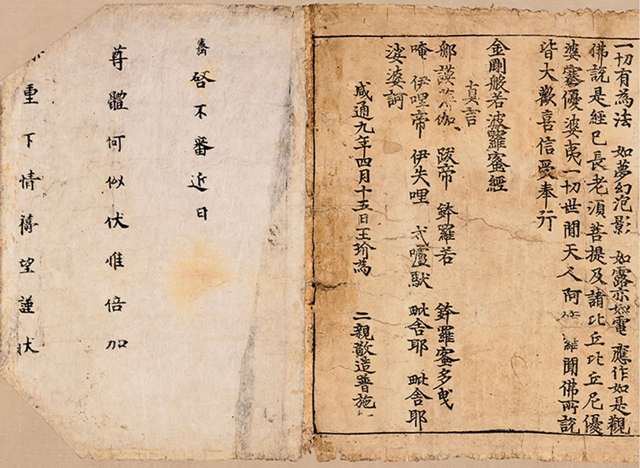 一切有為法　如夢幻泡影　如露亦如電　應作如是觀
佛說是經已長老須菩提及諸比丘比丘尼優
婆塞優婆夷一切世間天人阿脩羅聞佛所說
皆大歡喜信受奉行
金剛般若波羅蜜經
真言
郍謨薄伽　跋帝　鉢羅若　鉢羅蜜多曳
唵　伊哩帝　伊失哩　嚧馱　毗舍耶　毗舍耶
娑婆訶
咸通九年四月十五日王玠為　二親敬造普施
啓不審近日
尊體何似伏惟倍加
重下情禱望謹狀